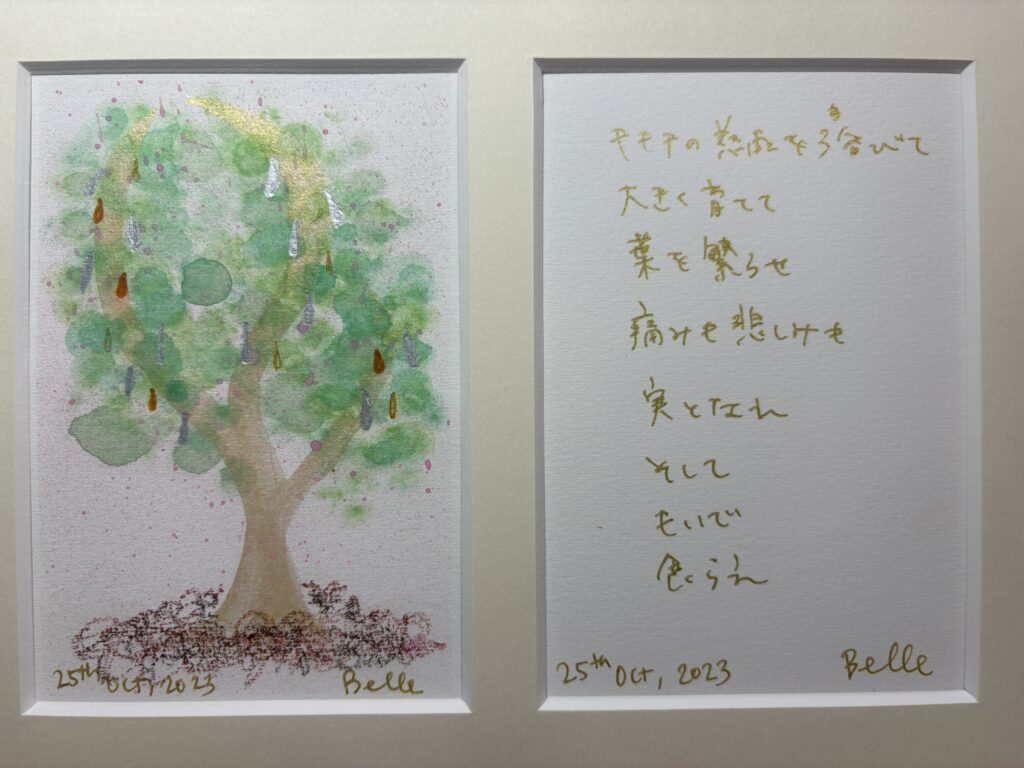 25th Oct, 2023 Belle
キモチの慈雨を浴びて
大きく育てて
葉を繁らせ
痛みも悲しみも
実となれ
そして
もいで
食らえ
25th Oct, 2023 Belle